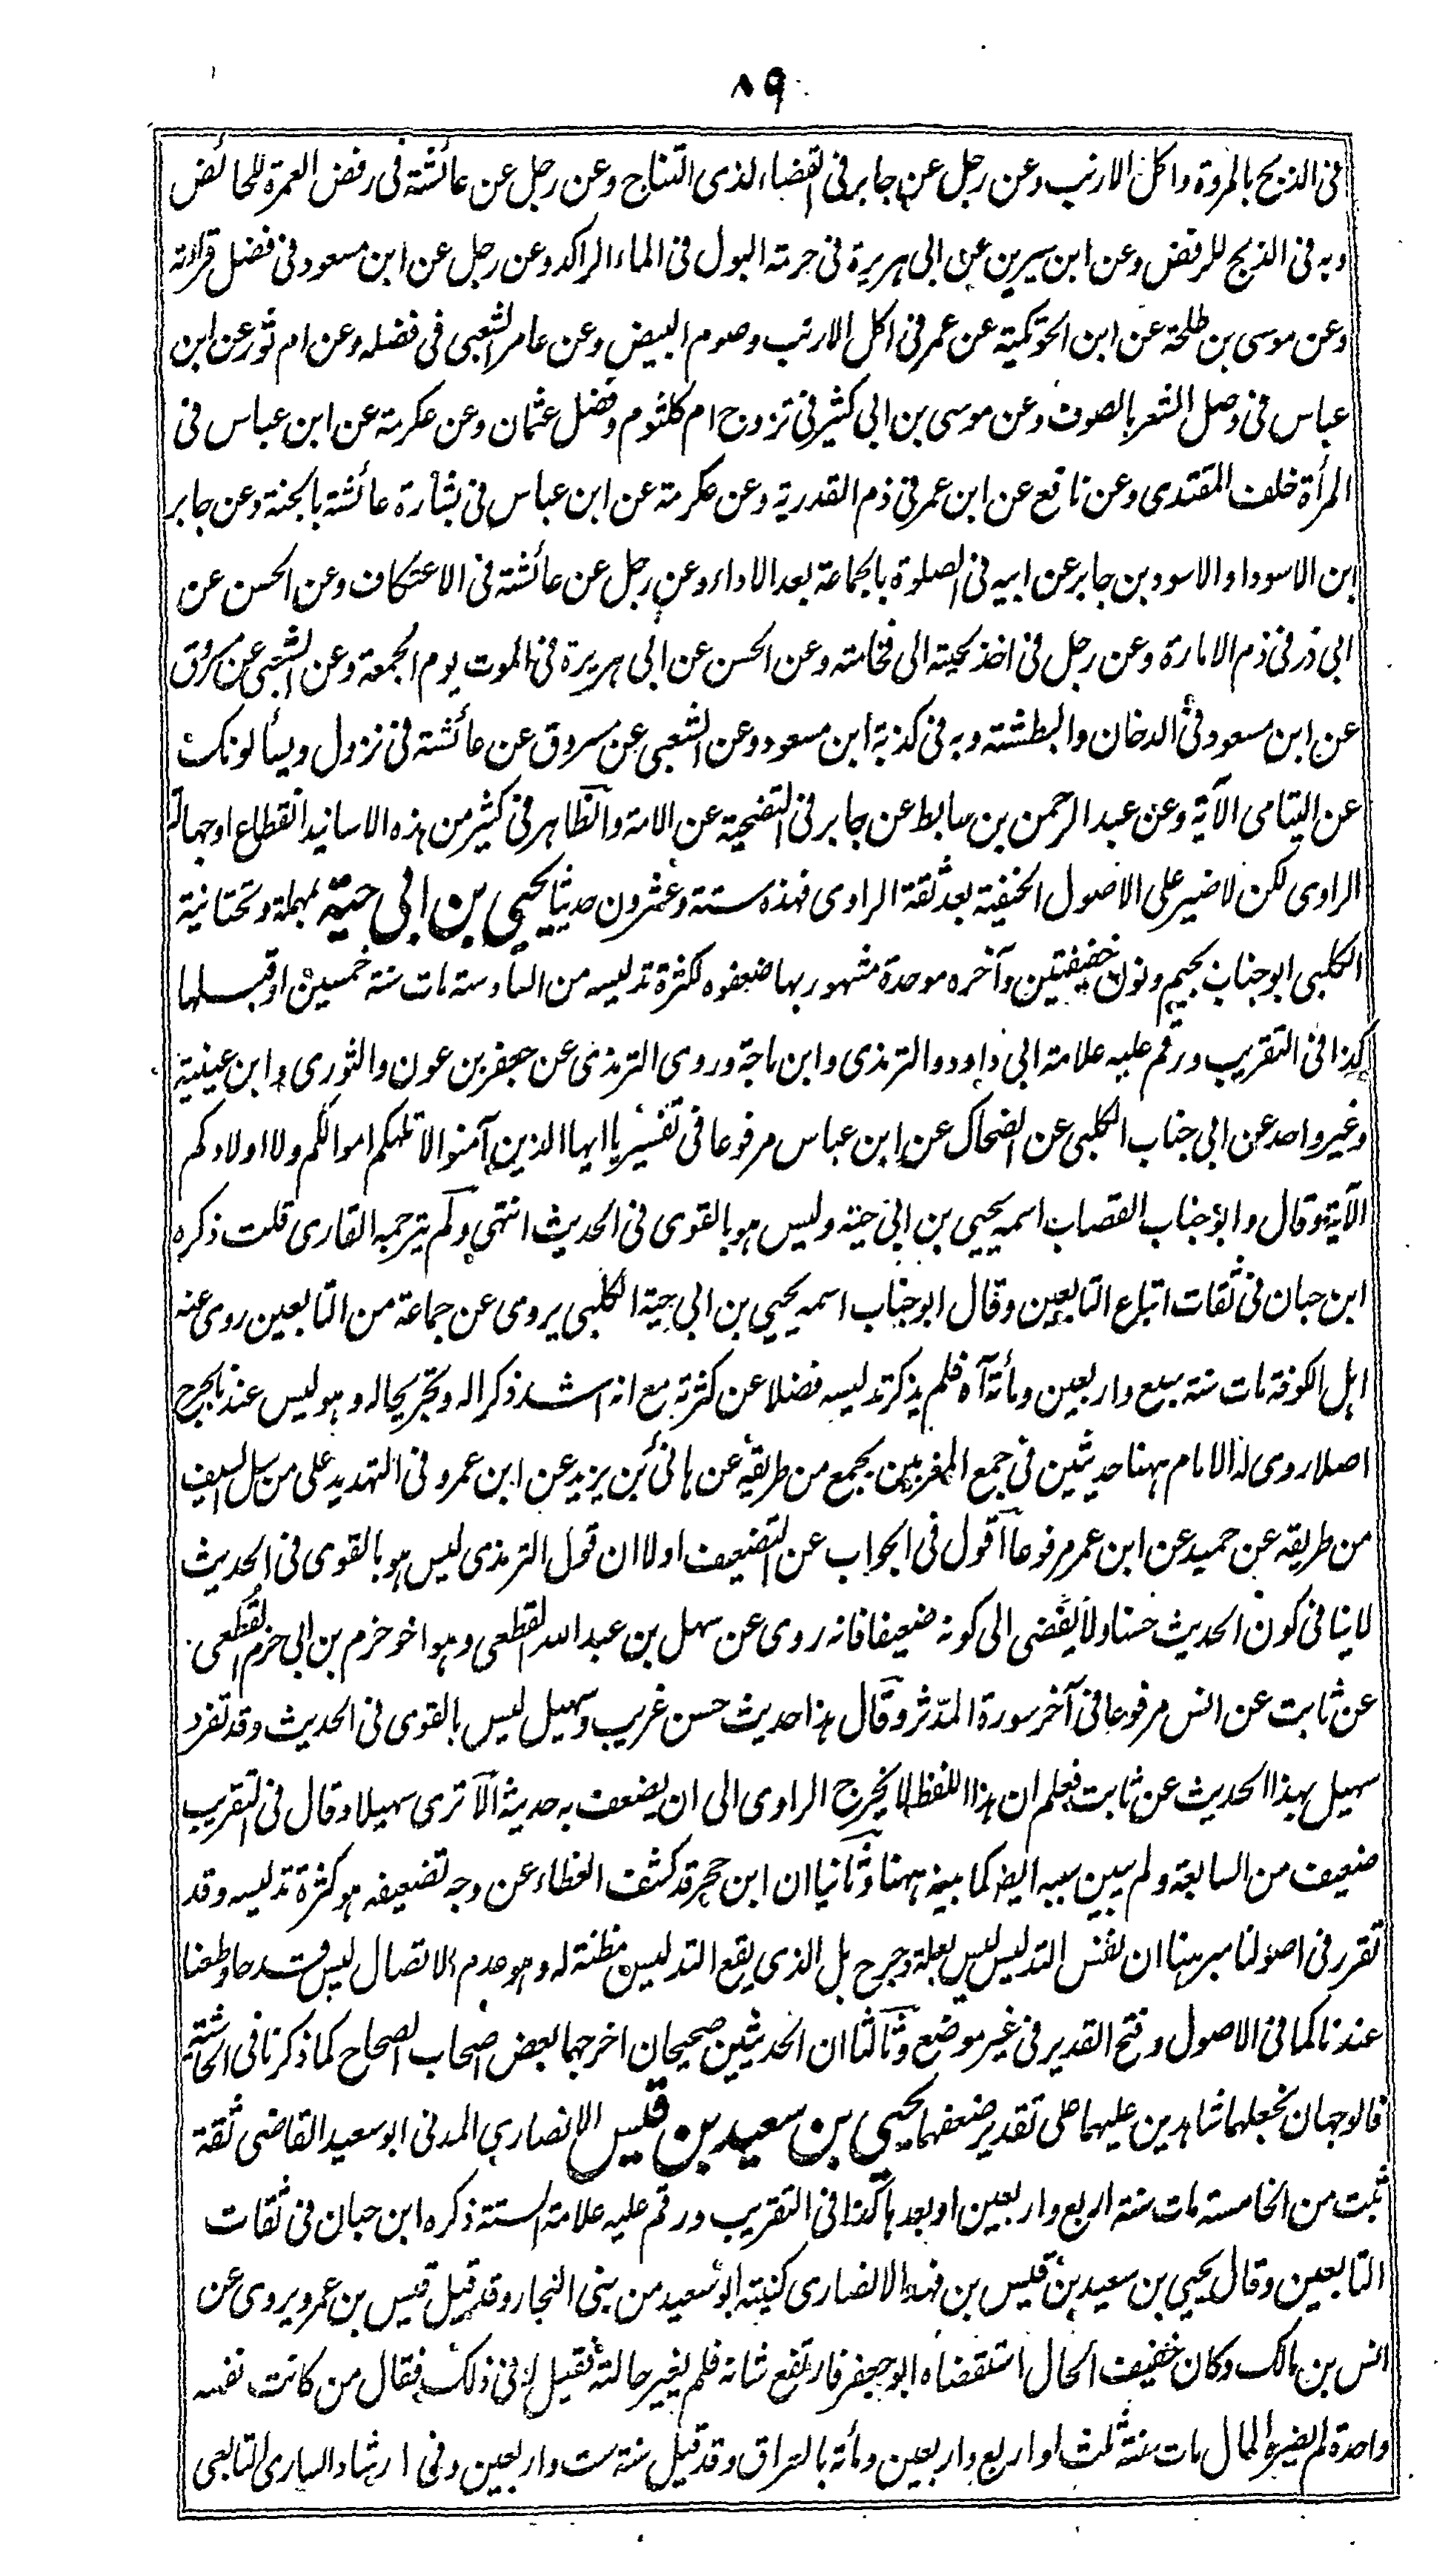 ٨٩
فی الذبح بالمروة واکل الارنب وعن رجل عن جابر فی القضاء لذی النتاج وعن رجل عن عائشة فی رفض العمرة للحائض
وبه فی الذبح للرفض وعن ابن سیرین عن ابی هریرة فی حرمة البول فی الماء الراکد وعن رجل عن ابن مسعود فی فضل قراءته
وعن موسی بن طلحة عن ابن الحوتکیة عن عمر فی اکل الارنب وصوم البیض وعن عامر الشعبی فی فضله وعن ام ثور عن ابن
عباس فی وصل الشعر بالصوف وعن موسی بن ابی کثیر فی تزوج ام کلثوم وفضل عثمان وعن عکرمة عن ابن عباس فی
المرأة خلف المقتدی وعن نافع عن ابن عمر فی ذم القدریة وعن عکرمة عن ابن عباس فی بشارة عائشة بالجنة وعن جابر
ابن الاسود او الاسود بن جابر عن ابیه فی الصلوة بالجماعة بعد الاداء وعن رجل عن عائشة فی الاعتکاف وعن الحسن عن
ابی ذر فی ذم الامارة وعن رجل فی اخذ لحیته ابی قحافة وعن الحسن عن ابی هریرة فی الموت یوم الجمعة وعن الشعبی عن مسروق
عن ابن مسعود فی الدخان والبطشة وبه فی کذبة ابن مسعود وعن الشعبی عن مسروق عن عائشة فی نزول ویسألونک
عن الیتامی الآیة وعن عبد الرحمن بن سابط عن جابر فی التضحیة عن الامة والظاهر فی کثیر من هذه الاسانید انقطاع او جهالة
الراوی لکن لا ضیر علی الاصول الحنفیة بعد ثقة الراوی فهذه ستة وعشرون حدیثا یحیی بن ابی حیة بمهملة وتحتانیة
الکلبی ابو جناب بجیم ونون خفیفتین وآخره موحدة مشهور بها ضعفوه لکثرة تدلیسه من السادسة مات سنة خمسین او قبلها
کذا فی التقریب ورقم علیه علامة ابی داود والترمذی وابن ماجة وروی الترمذی عن جعفر بن عون والثوری وابن عیینة
وغیر واحد عن ابی جناب الکلبی عن الضحاک عن ابن عباس مرفوعا فی تفسیر یا ایها الذین آمنوا لا تلهکم اموالکم ولا اولادکم
الآیة وقال وابو جناب القصاب اسمه یحیی بن ابی حیة ولیس هو بالقوی فی الحدیث انتهی ولم یترجمه القاری قلت ذکره
ابن حبان فی ثقات اتباع التابعین وقال ابو جناب اسمه یحیی بن ابی حیة الکلبی یروی عن جماعة من التابعین روی عنه
اهل الکوفة مات سنة سبع واربعین ومأة آه فلم یذکر تدلیسه فضلا عن کثرته مع انه اشد ذکرا له وتجریحا له وهو لیس عندنا بجرح
اصلا روی له الامام ههنا حدیثین فی جمع المغربین بجمع من طریقه عن هانئ بن یزید عن ابن عمر وفی التهدید علی من سل السیف
من طریقه عن حمید عن ابن عمر مرفوعا اقول فی الجواب عن التضعیف اولا ان قول الترمذی لیس هو بالقوی فی الحدیث
لا ینافی کون الحدیث حسنا ولا یفضی الی کونه ضعیفا فانه روی عن سهل بن عبد الله القطعی وهو اخو حزم بن ابی حزم القطعی
عن ثابت عن انس مرفوعا فی آخر سورة المدثر وقال هذا حدیث حسن غریب وسهیل لیس بالقوی فی الحدیث وقد تفرد
سهیل بهذا الحدیث عن ثابت فعلم ان هذا اللفظ لا یخرج الراوی الی ان یضعف به حدیثه الا تری سهیلا وقال فی التقریب
ضعیف من السابعة ولم یبین سببه ایضا کما بینه ههنا وثانیا ان ابن حجر قد کشف الغطاء عن وجه تضعیفه هو کثرة تدلیسه وقد
تقرر فی اصولنا مبرهنا ان نفس التدلیس لیس بعلة وجرح بل الذی یقع التدلیس مظنة له وهو عدم الاتصال لیس قدحا وطعنا
عندنا کما فی الاصول وفتح القدیر فی غیر موضع وثالثا ان الحدیثین صحیحان اخرجهما بعض اصحاب الصحاح کما ذکرنا فی الحاشیة
فالوجهان نجعلهما شاهدین علیهما علی تقدیر ضعفهما یحیی بن سعید بن قیس الانصاری المدنی ابو سعید القاضی ثقة
ثبت من الخامسة مات سنة اربع واربعین او بعدها کذا فی التقریب ورقم علیه علامة الستة ذکره ابن حبان فی ثقات
التابعین وقال یحیی بن سعید بن قیس بن فهد الانصاری کنیته ابو سعید من بنی النجار وقد قیل قیس بن عمرو یروی عن
انس بن مالک وکان خفیف الحال استقضاه ابو جعفر فارتفع شانه فلم یغیر حالته فقیل له فی ذلک فقال من کانت نفسه
واحدة لم یغیره المال مات سنة ثلث او اربع واربعین ومأة بالعراق وقد قیل سنة ست واربعین وفی ارشاد الساری التابعی